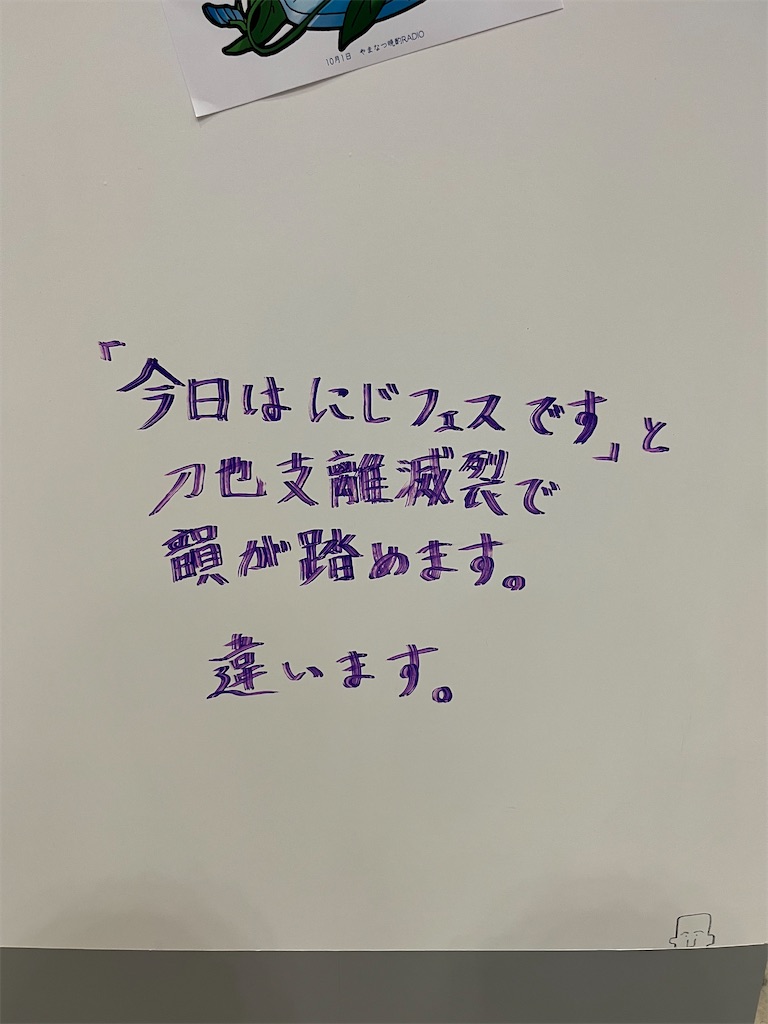 10月1日 やまなつ晩酌RADIO
「今日はにじフェスです」と
刀也支離滅裂で
韻が踏めます。
違います。